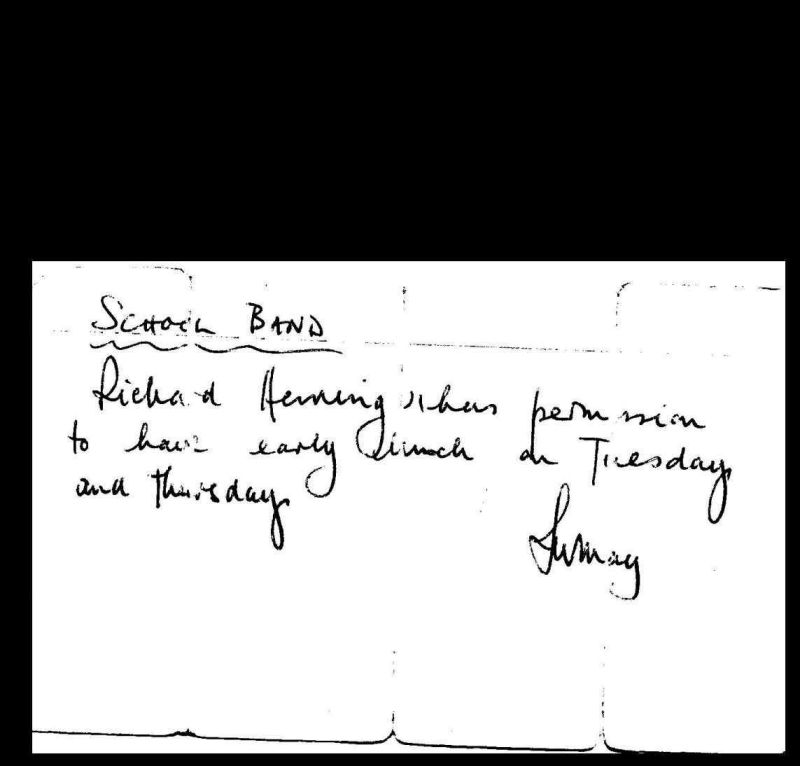 SCHOOL BAND
Richard has permission
to have early lunch on Tuesday
and Thursday